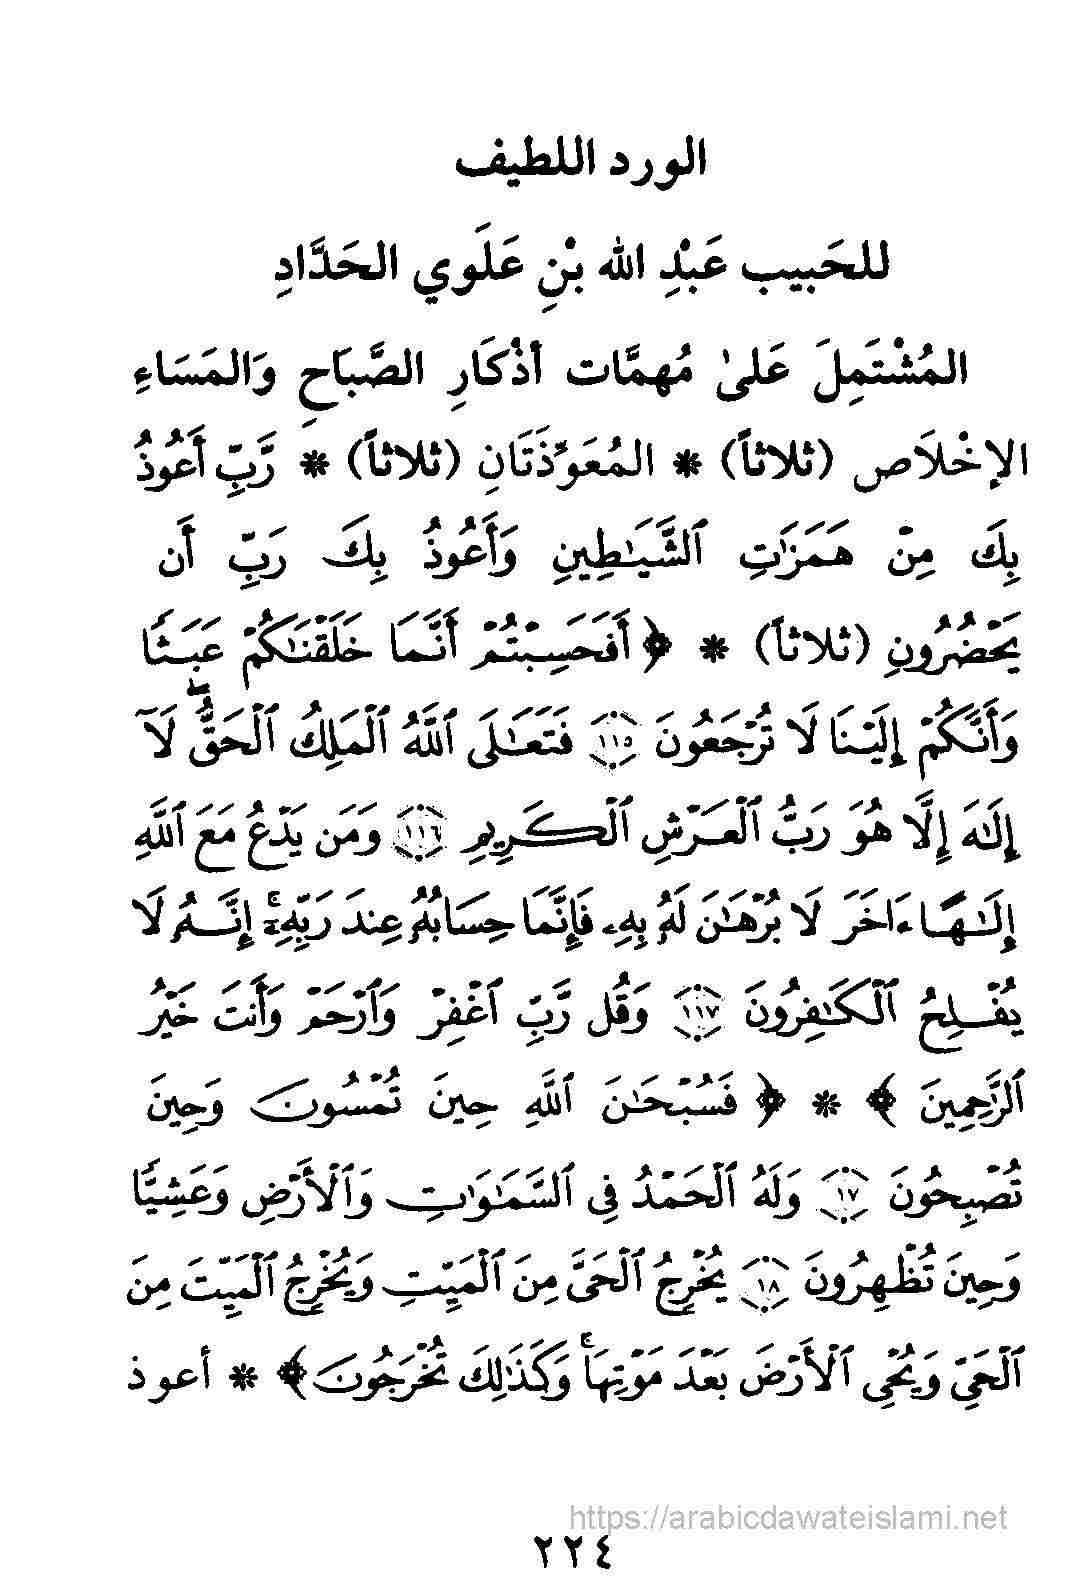 الورد اللطيف
للحَبيب عَبْدِ الله بْنِ عَلَوي الحَدَّادِ
المُشْتَمِلَ عَلىٰ مُهمَّات أذْكَارِ الصَّبَاحِ وَالمَسَاءِ
الإخْلَاص (ثلاثاً) * المُعَوِّذَتَانِ (ثلاثاً) * رَّبِّ أَعُوذُ
بِكَ مِنْ هَمَزَٰتِ ٱلشَّيَـٰطِينِ وَأَعُوذُ بِكَ رَبِّ أَن
يَحْضُرُونِ (ثلاثاً) * ﴿ أَفَحَسِبْتُمْ أَنَّمَا خَلَقْنَـٰكُمْ عَبَثًا
وَأَنَّكُمْ إِلَيْنَا لَا تُرْجَعُونَ ١١٥ فَتَعَـٰلَى ٱللَّهُ ٱلْمَلِكُ ٱلْحَقُّ ۖ لَآ
إِلَـٰهَ إِلَّا هُوَ رَبُّ ٱلْعَرْشِ ٱلْكَرِيمِ ١١٦ وَمَن يَدْعُ مَعَ ٱللَّهِ
إِلَـٰهًا ءَاخَرَ لَا بُرْهَـٰنَ لَهُۥ بِهِۦ فَإِنَّمَا حِسَابُهُۥ عِندَ رَبِّهِۦٓ ۚ إِنَّهُۥ لَا
يُفْلِحُ ٱلْكَـٰفِرُونَ ١١٧ وَقُل رَّبِّ ٱغْفِرْ وَٱرْحَمْ وَأَنتَ خَيْرُ
ٱلرَّٰحِمِينَ ﴾ * ﴿ فَسُبْحَـٰنَ ٱللَّهِ حِينَ تُمْسُونَ وَحِينَ
تُصْبِحُونَ ١٧ وَلَهُ ٱلْحَمْدُ فِى ٱلسَّمَـٰوَٰتِ وَٱلْأَرْضِ وَعَشِيًّا
وَحِينَ تُظْهِرُونَ ١٨ يُخْرِجُ ٱلْحَىَّ مِنَ ٱلْمَيِّتِ وَيُخْرِجُ ٱلْمَيِّتَ مِنَ
ٱلْحَىِّ وَيُحْىِ ٱلْأَرْضَ بَعْدَ مَوْتِهَا ۚ وَكَذَٰلِكَ تُخْرَجُونَ ﴾ * أعوذ
https://arabicdawateislami.net
٢٢٤